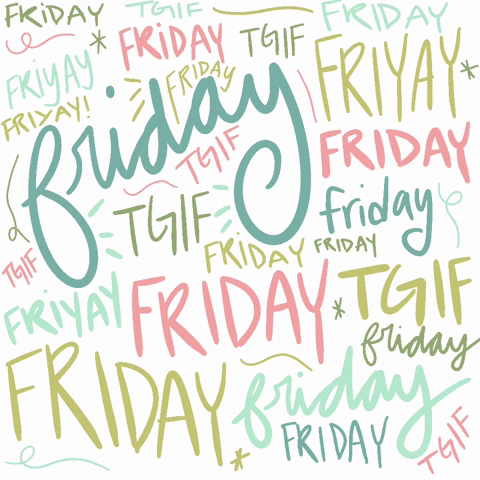 FRiDAY
TGIF
FRIDAY
FRIDAY
TGIF
FRIYAY
FRIYAY
FRIDAY
FRIYAY!
friday
TGIF
FRIDAY
friday
TGIF
FRIDAY
FRIDAY
TGIF
FRIYAY
FRIDAY
TGIF
friday
FRIDAY
friday
FRIDAY
TGIF